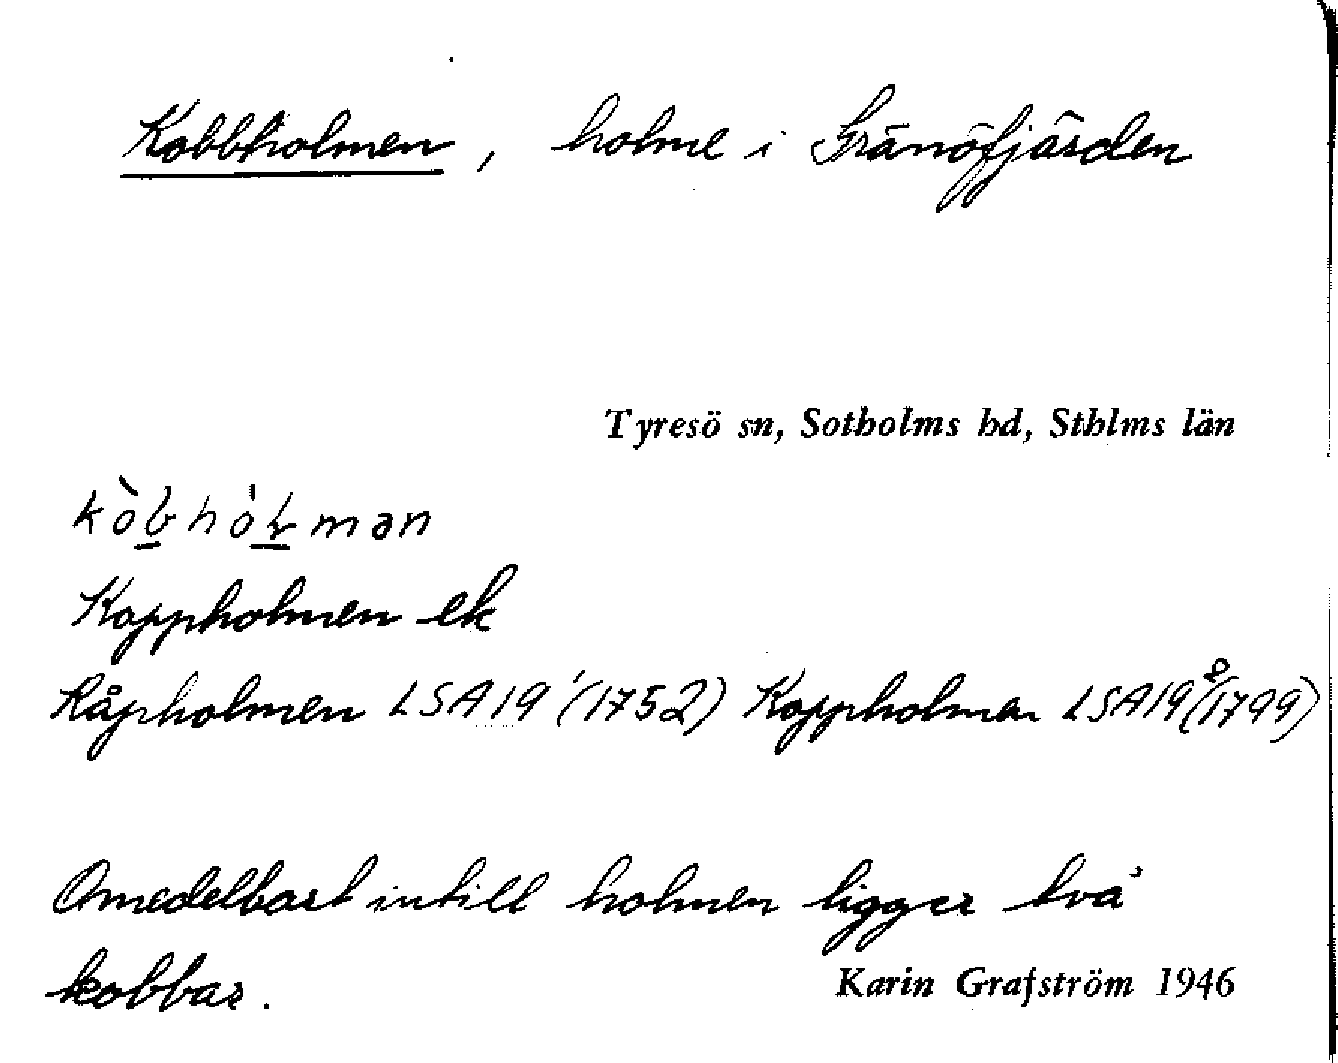 Kobbholmen, holme i Granöfjärden
Tyresö sn, Sotholms hd, Sthlms län
kòbhólmən
Koppholmen ek
Råpholmen LSA 19 (1752) Koppholmen LSA 19 (1799)
Omedelbart intill holmen ligger två
kobbar.
Karin Grafström 1946